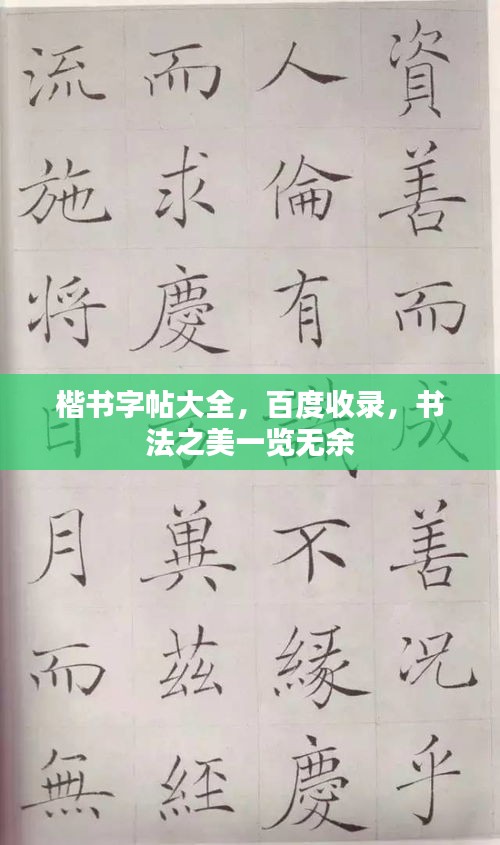 楷书字帖大全，百度收录，书
法之美一览无余
資善而成善況乎
人倫有識不緣慶
而求慶方兾茲經
流施將日月而無